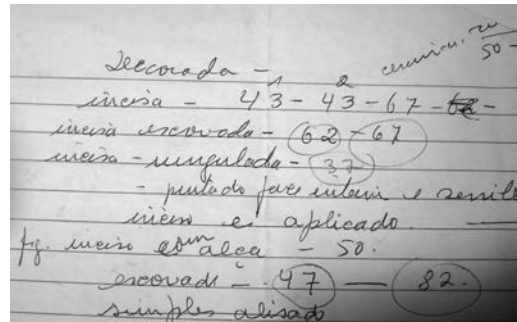 Deccorada -
1 2
incisa - 43 - 43 - 67 -
incisa escovada - 62 - 67
incisa - ungulada - 37
- pintado face interin e
inciso e aplicado.
fg. inciso com alça - 50.
escovado - 47 — 82.
simples alisado
50 -